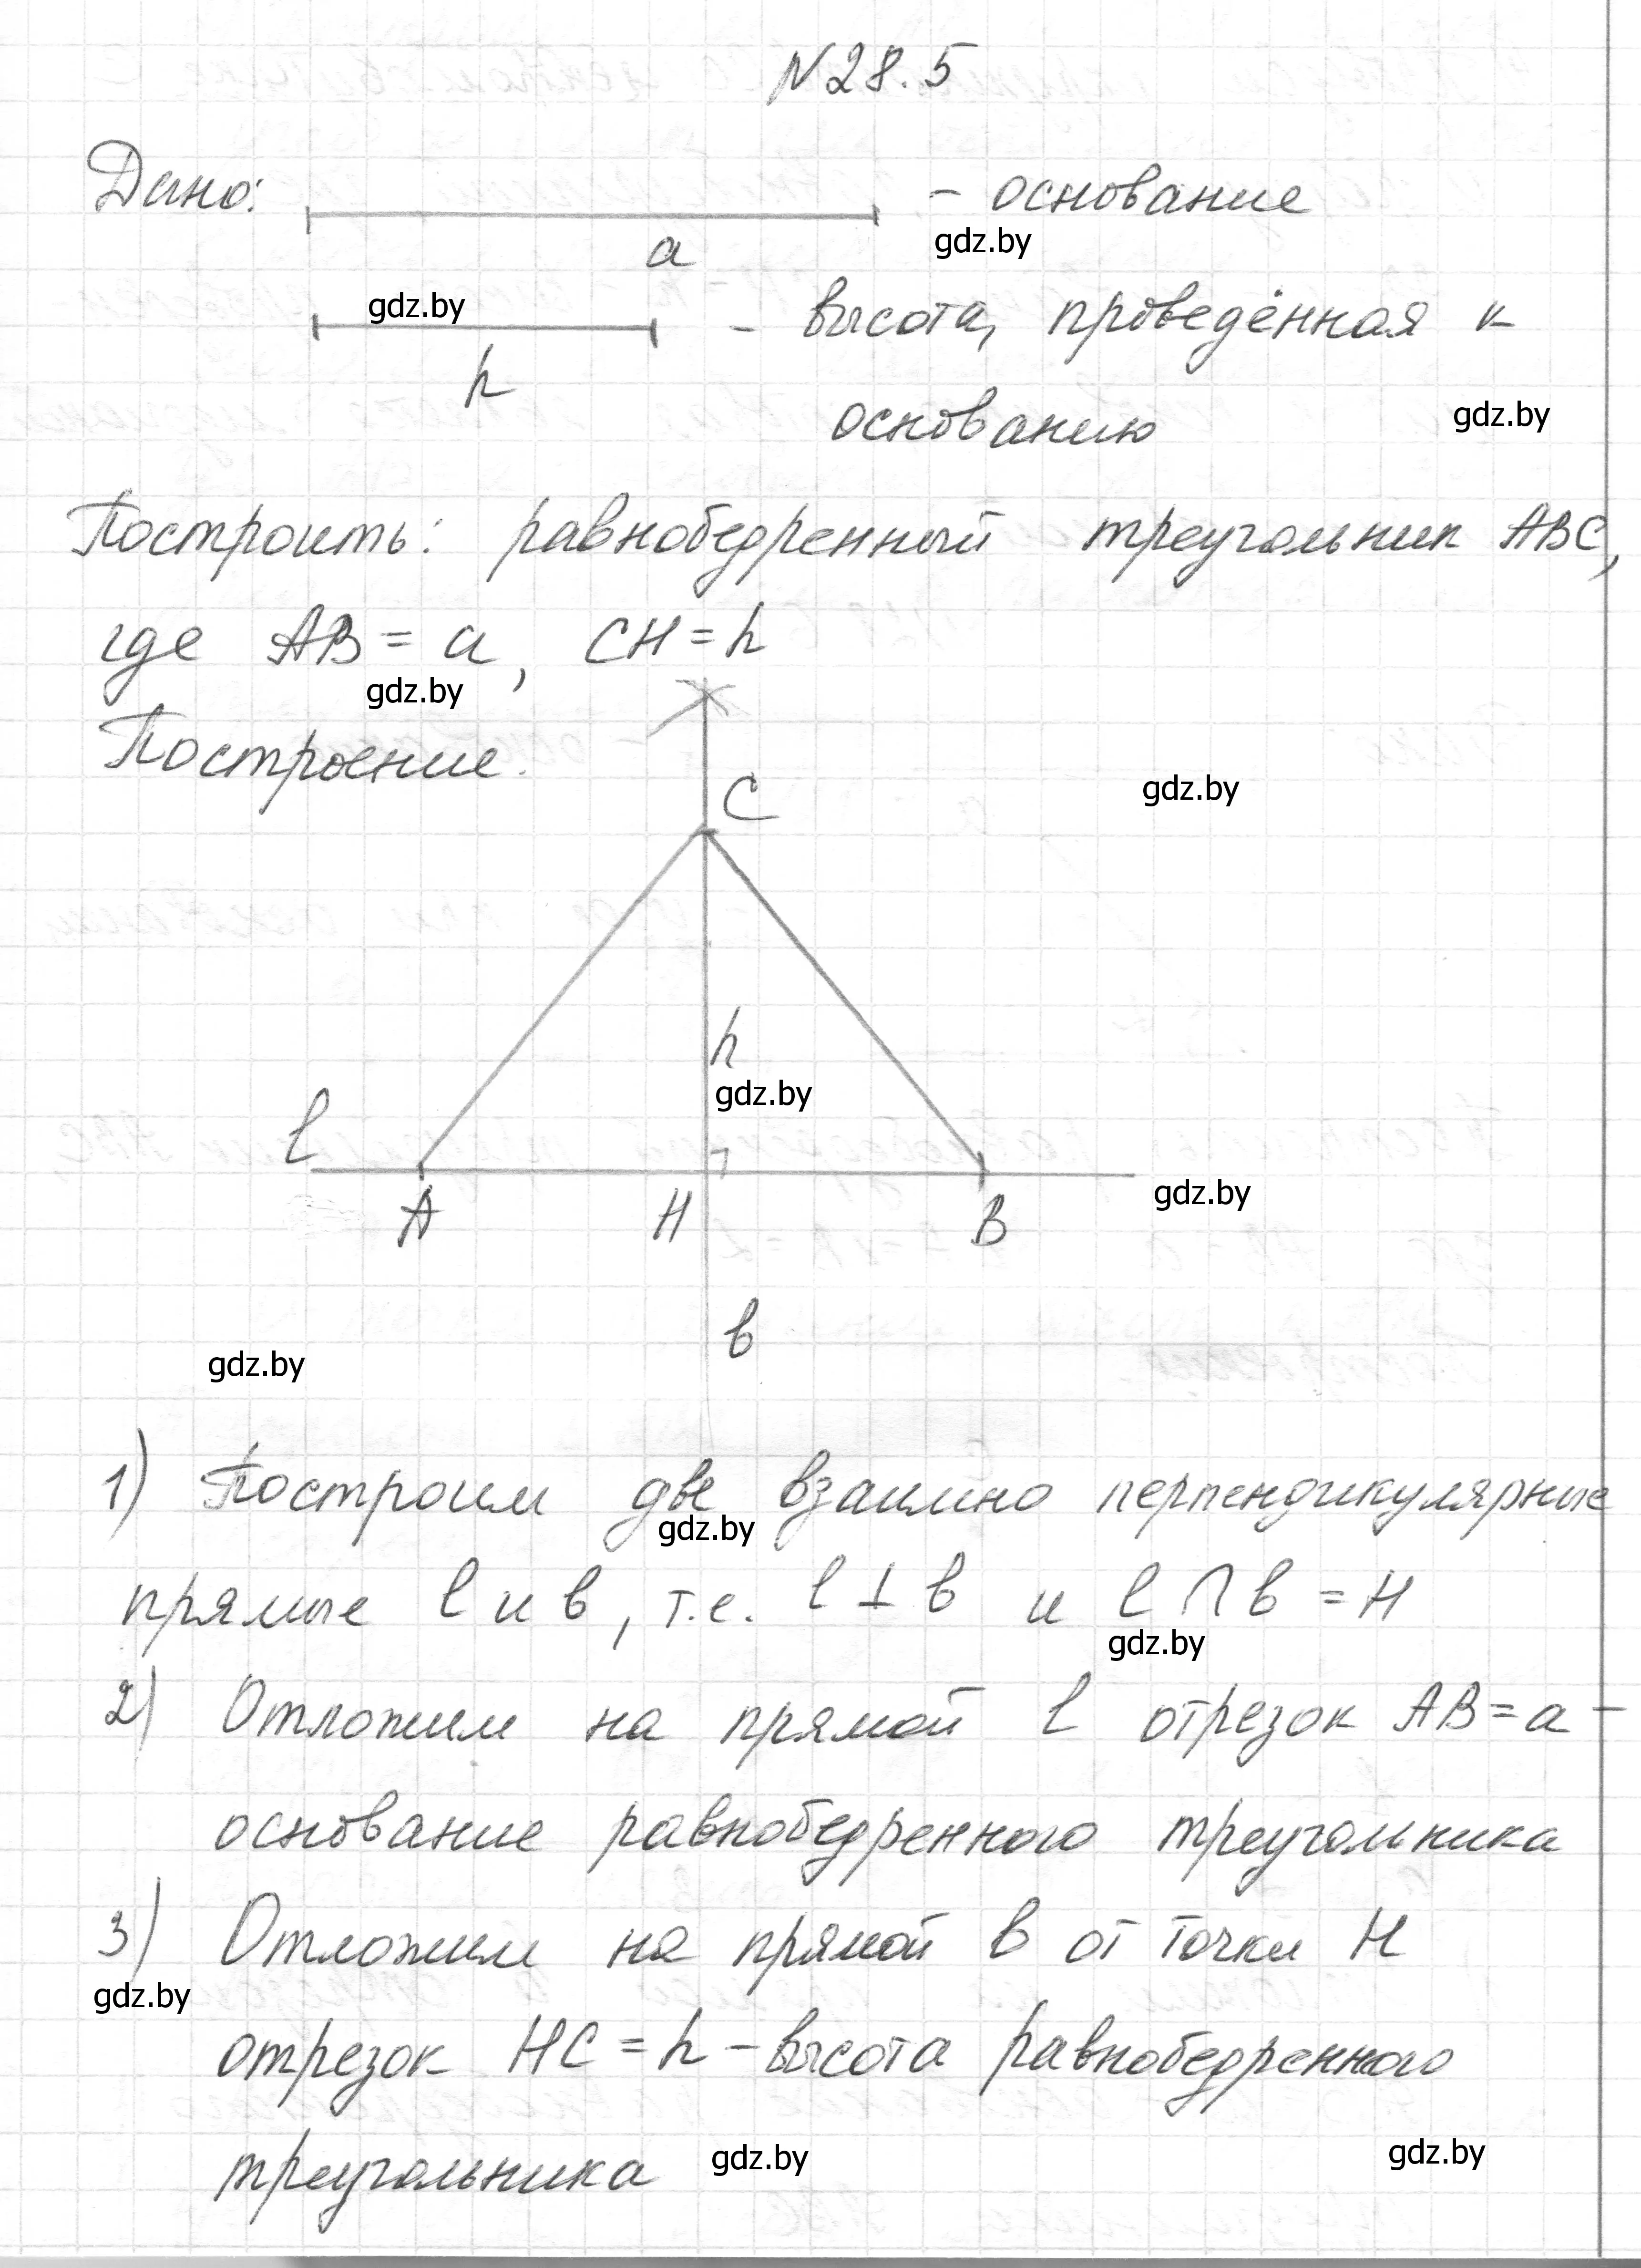 N 28.5
Дано: - основание
gdz.by
a
gdz.by
- высота, проведённая к
h
основанию gdz.by
Построить: равнобедренный треугольник ABC,
где AB = a, CH = h
gdz.by
Построение.
C gdz.by
h
gdz.by
l
gdz.by
A H B
в
gdz.by
1) Построим две взаимно перпендикулярные
gdz.by
прямые l и в, т.е. l ⊥ в и l ∩ в = H
gdz.by
2) Отложим на прямой l отрезок AB = a -
основание равнобедренного треугольника
3) Отложим на прямой в от точки H
gdz.by
отрезок HC = h - высота равнобедренного
треугольника gdz.by gdz.by